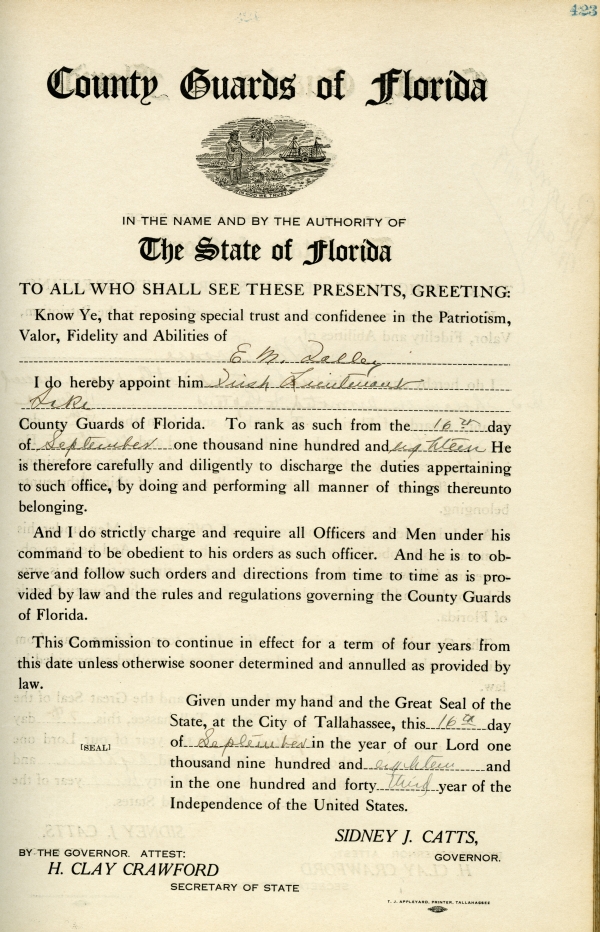 423
County Guards of Florida
IN THE NAME AND BY THE AUTHORITY OF
The State of Florida
TO ALL WHO SHALL SEE THESE PRESENTS, GREETING:
Know Ye, that reposing special trust and confidence in the Patriotism,
Valor, Fidelity and Abilities of
E. M. Talley
I do hereby appoint him First Lieutenant
Lake
County Guards of Florida. To rank as such from the 16th day
of September one thousand nine hundred and eighteen He
is therefore carefully and diligently to discharge the duties appertaining
to such office, by doing and performing all manner of things thereunto
belonging.
And I do strictly charge and require all Officers and Men under his
command to be obedient to his orders as such officer. And he is to ob-
serve and follow such orders and directions from time to time as is pro-
vided by law and the rules and regulations governing the County Guards
of Florida.
This Commission to continue in effect for a term of four years from
this date unless otherwise sooner determined and annulled as provided by
law.
Given under my hand and the Great Seal of the
State, at the City of Tallahassee, this 16th day
[SEAL] of September in the year of our Lord one
thousand nine hundred and eighteen and
in the one hundred and forty third year of the
Independence of the United States.
SIDNEY J. CATTS,
GOVERNOR.
BY THE GOVERNOR. ATTEST:
H. CLAY CRAWFORD
SECRETARY OF STATE
T. J. APPLEYARD, PRINTER, TALLAHASSEE